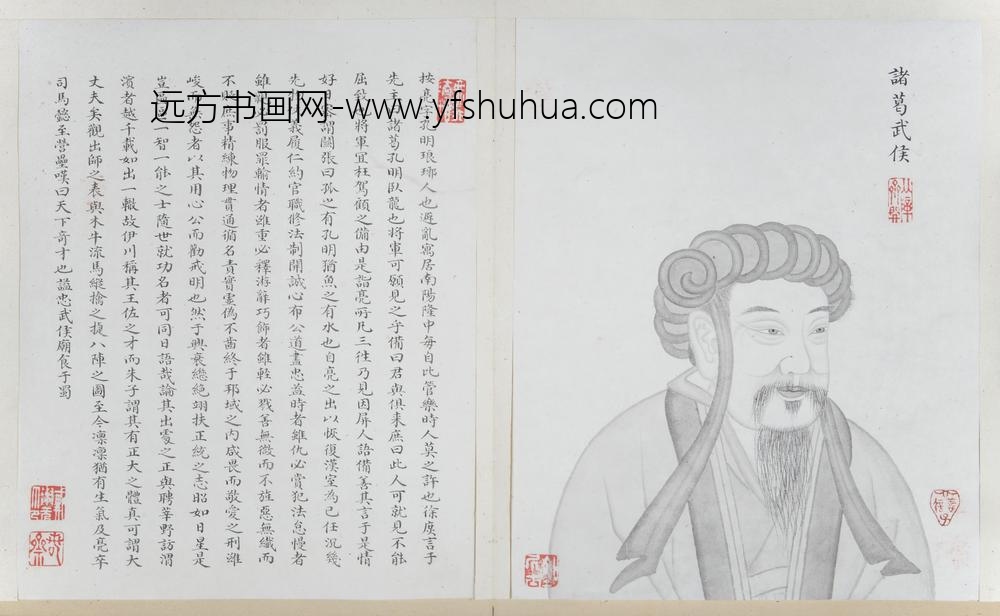 諸葛武侯
按亮字孔明琅琊人也避亂寓居南陽隆中每自比管樂時人莫之許也徐庶言于
先主曰諸葛孔明臥龍也將軍可願見之乎備曰君與俱来庶曰此人可就見不能
屈致也將軍宜枉駕顧之備由是詣亮所凡三往乃見因屏人語備善其言于是情
好日密謂關張曰孤之有孔明猶魚之有水也自亮之出以恢復漢室為己任況幾
先我履仁約官職修法制開誠心布公道盡忠益時者雖仇必賞犯法怠慢者
雖親必罰服罪輸情者雖重必釋游辭巧飾者雖輕必戮善無微而不旌惡無纖而
不貶庶事精練物理貫通循名責實虛偽不齒終于邦域之内咸畏而敬愛之刑雖
峻而無怨者以其用心公而勸戒明也然于興衰繼絕翊扶正統之志昭如日星是
豈一智一能之士隨世就功名者可同日語哉論其出處之正與聘莘野訪渭
濱者越千載如出一轍故伊川稱其王佐之才而朱子謂其有正大之體真可謂大
丈夫矣觀出師之表與木牛流馬縱擒之捷八陣之圖至今凛凛猶有生氣及亮卒
司馬懿至營壘嘆曰天下奇才也諡忠武侯廟食于蜀
远方书画网-www.yfshuhua.com